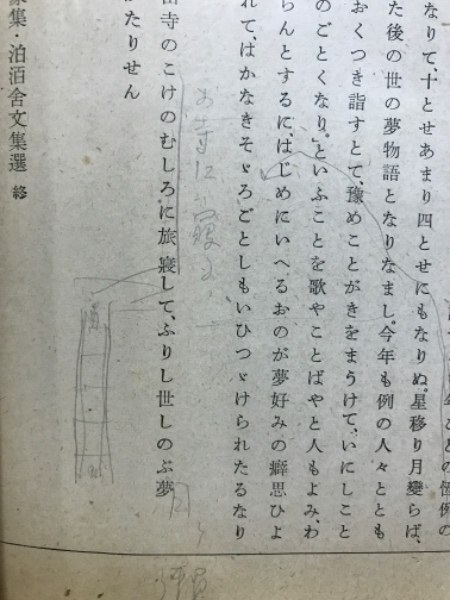 なりて、十とせあまり四とせにもなりぬ。星移り月變らば、
た後の世の夢物語となりなまし。今年も例の人々ととも
おくつき詣すとて、豫めことがきをまうけて、いにしこと
のごとくなり。といふことを歌やことばやと人もよみ、わ
らんとするに、はじめにいへるおのが夢好みの癖思ひよ
れて、はかなきそゞろごとしもいひつゞけられたるなり
寺のこけのむしろに旅寢して、ふりし世しのぶ夢
たりせん
集・泊洦舍文集選 終